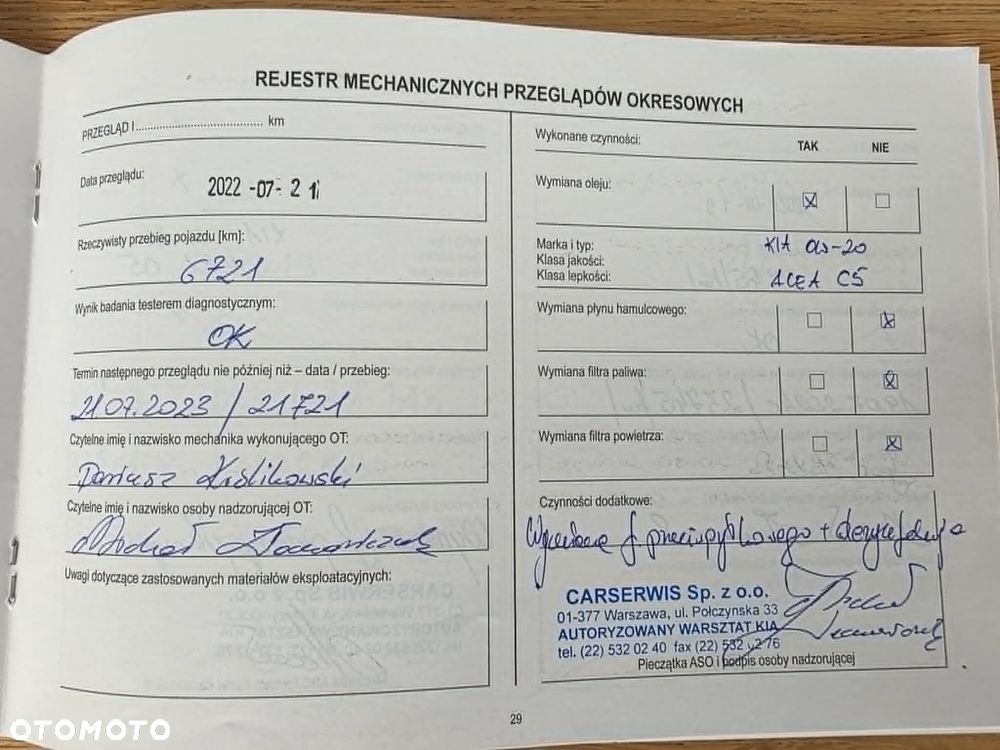 REJESTR MECHANICZNYCH PRZEGLĄDÓW OKRESOWYCH
PRZEGLĄD I........................................ km
Data przeglądu:
2022-07-21
Rzeczywisty przebieg pojazdu [km]:
6721
Wynik badania testerem diagnostycznym:
OK
Termin następnego przeglądu nie później niż – data / przebieg:
21.07.2023 / 21721
Czytelne imię i nazwisko mechanika wykonującego OT:
Dariusz Królikowski
Czytelne imię i nazwisko osoby nadzorującej OT:
Uwagi dotyczące zastosowanych materiałów eksploatacyjnych:
Wykonane czynności:
TAK NIE
Wymiana oleju:
Marka i typ: KIA 0W-20
Klasa jakości:
Klasa lepkości: ACEA C5
Wymiana płynu hamulcowego:
Wymiana filtra paliwa:
Wymiana filtra powietrza:
Czynności dodatkowe:
f. przeciwpyłkowego +
CARSERWIS Sp. z o.o.
01-377 Warszawa, ul. Połczynska 33
AUTORYZOWANY WARSZTAT KIA
tel. (22) 532 02 40 fax (22) 532 02 76
Pieczątka ASO i podpis osoby nadzorującej
29
OTOMOTO